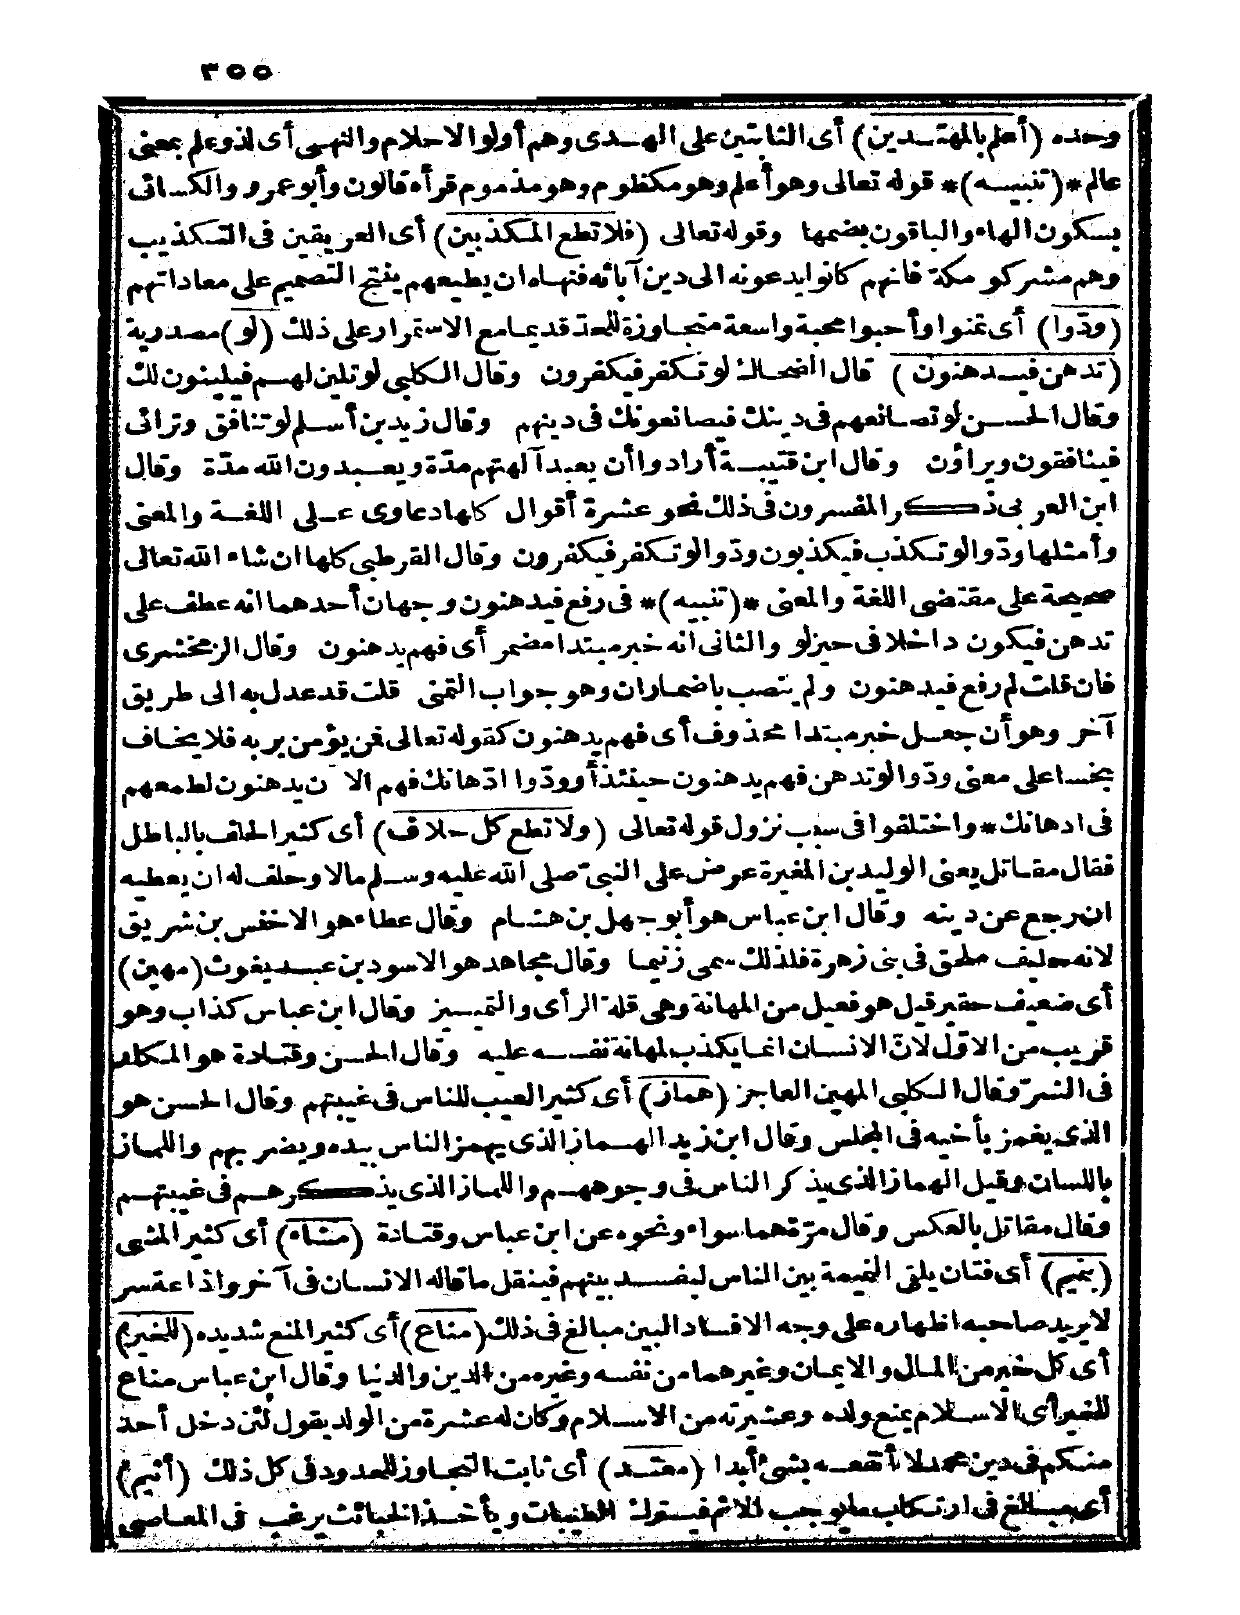 ٣٥٥
وحده (أعلم بالمهتدين) أى الثابتين على الهدى وهم أولوا الاحلام والنهى أى لذو علم بمعنى
عالم *(تنبيه)* قوله تعالى وهو أعلم وهو مكظوم وهو مذموم قرأه قالون وأبو عمرو والكسائى
بسكون الهاء والباقون بضمها وقوله تعالى (فلا تطع المكذبين) أى العريقين فى التكذيب
وهم مشركو مكة فانهم كانوا يدعونه الى دين آبائه فنهاه ان يطيعهم ينتج التصميم على معاداتهم
(ودّوا) أى تمنوا وأحبوا محبة واسعة متجاوزة للحد قديما مع الاستمرار على ذلك (لو) مصدرية
(تدهن فيدهنون) قال الضحاك لو تكفر فيكفرون وقال الكلبى لو تلين لهم فيلينون لك
وقال الحسن لو تصانعهم فى دينك فيصانعونك فى دينهم وقال زيد بن أسلم لو تنافق وترائى
فينافقون ويراؤن وقال ابن قتيبة أرادوا أن يعبد آلهتهم مدّة ويعبدون الله مدّة وقال
ابن العربى ذكر المفسرون فى ذلك نحو عشرة أقوال كلها دعاوى على اللغة والمعنى
وأمثلها ودّوا لو تكذب فيكذبون ودّوا لو تكفر فيكفرون وقال القرطبى كلها ان شاء الله تعالى
صحيحة على مقتضى اللغة والمعنى *(تنبيه)* فى رفع فيدهنون وجهان أحدهما انه عطف على
تدهن فيكون داخلا فى حيز لو والثانى انه خبر مبتدا مضمر أى فهم يدهنون وقال الزمخشرى
فان قلت لم رفع فيدهنون ولم ينصب باضمار ان وهو جواب التمنى قلت قد عدل به الى طريق
آخر وهو أن جعل خبر مبتدا محذوف أى فهم يدهنون كقوله تعالى فمن يؤمن بربه فلا يخاف
بخسا على معنى ودّوا لو تدهن فهم يدهنون حينئذ أو ودّوا ادّهانك فهم الآن يدهنون لطمعهم
فى ادهانك * واختلفوا فى سبب نزول قوله تعالى (ولا تطع كل حلاف) أى كثير الحلف بالباطل
فقال مقاتل يعنى الوليد بن المغيرة عرض على النبىّ صلى الله عليه وسلم مالا وحلف له ان يعطيه
ان رجع عن دينه وقال ابن عباس هو أبو جهل بن هشام وقال عطاء هو الاخفس بن شريق
لانه حليف ملحق فى بنى زهرة فلذلك سمى زنيما وقال مجاهد هو الاسود بن عبد يغوث (مهين)
أى ضعيف حقير قيل هو فعيل من المهانة وهى قلة الرأى والتمييز وقال ابن عباس كذاب وهو
قريب من الاوّل لانّ الانسان انما يكذب لمهانة نفسه عليه وقال الحسن وقتادة هو المكثار
فى الشرّ وقال الكلبى المهين العاجز (هماز) أى كثير العيب للناس فى غيبتهم وقال الحسن هو
الذى يغمز بأخيه فى المجلس وقال ابن زيد الهماز الذى يهمز الناس بيده ويضربهم واللماز
باللسان وقيل الهماز الذى يذكر الناس فى وجوههم واللماز الذى يذكرهم فى غيبتهم
وقال مقاتل بالعكس وقال مرّة هما سواء ونحوه عن ابن عباس وقتادة (مشاء) أى كثير المشى
(بنميم) أى فتان يلقى النميمة بين الناس ليفسد بينهم فينقل ما قاله الانسان فى آخر واذا عقسر
لا يريد صاحبه اظهاره على وجه الافساد البين مبالغ فى ذلك (مناع) أى كثير المنع شديده (للخير)
أى كل خير من المال والايمان وغيرهما من نفسه وغيره من الدين والدنيا وقال ابن عباس مناع
للخير أى الاسلام يمنع ولده وعشيرته من الاسلام وكان له عشرة من الولد يقول لئن دخل أحد
منكم فى دين محمد لا أنفعه بشئ أبدا (معتد) أى ثابت التجاوز للحدود فى كل ذلك (أثيم)
أى مبالغ فى ارتكاب ما يوجب الاثم فيترك الطيبات ويأخذ الخبائث يرغب فى المعاصى